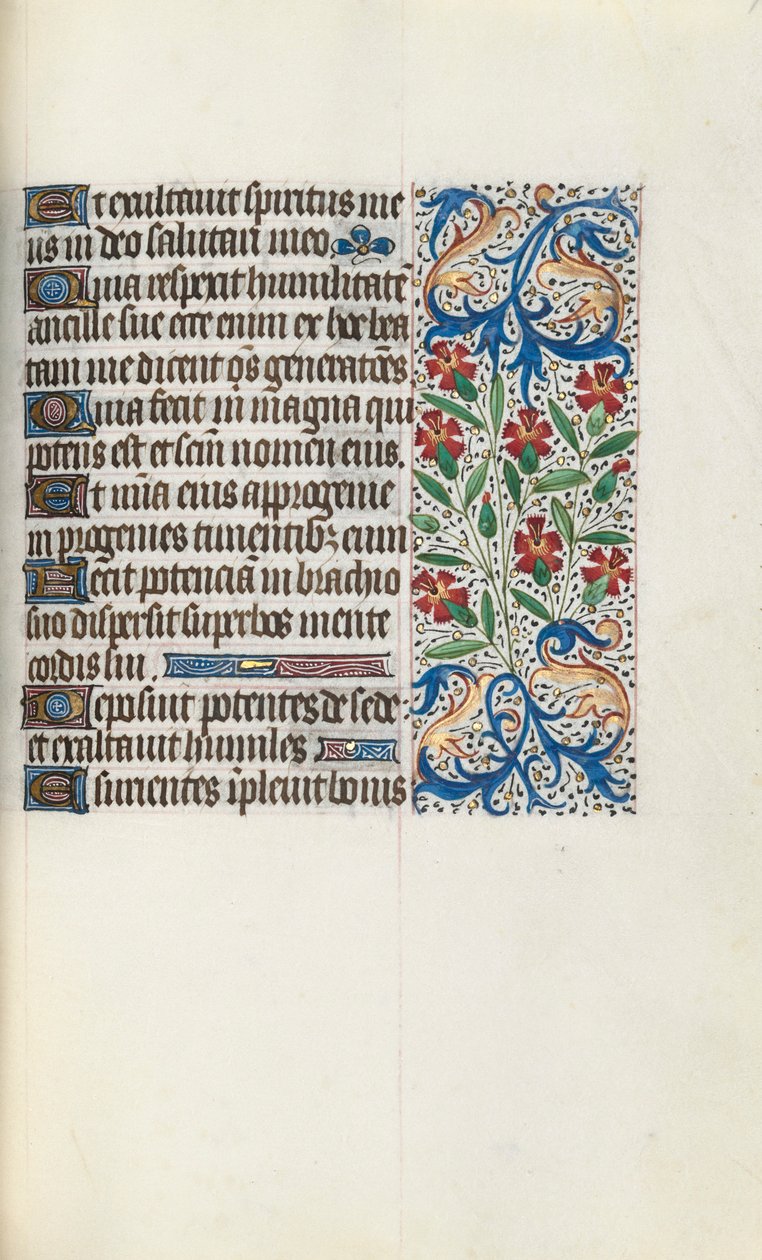 Et exultavit spiritus me
us in deo salutari meo.
Quia respexit humilitatē
ancille sue ecce enim ex hoc bea
tam me dicent oēs generatōes
Quia fecit mi magna qui
potens est et scm̄ nomen eius.
Et mīa eius a progenie
in progenies timentibꝫ eum
Fecit potenciā in brachio
suo dispersit superbos mente
cordis sui.
Deposuit potentes de sede
et exaltavit humiles
Esurientes īplevit bonis